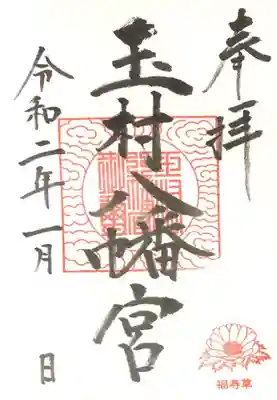 奉拝
玉村八幡宮
令和二年一月　日
福寿草